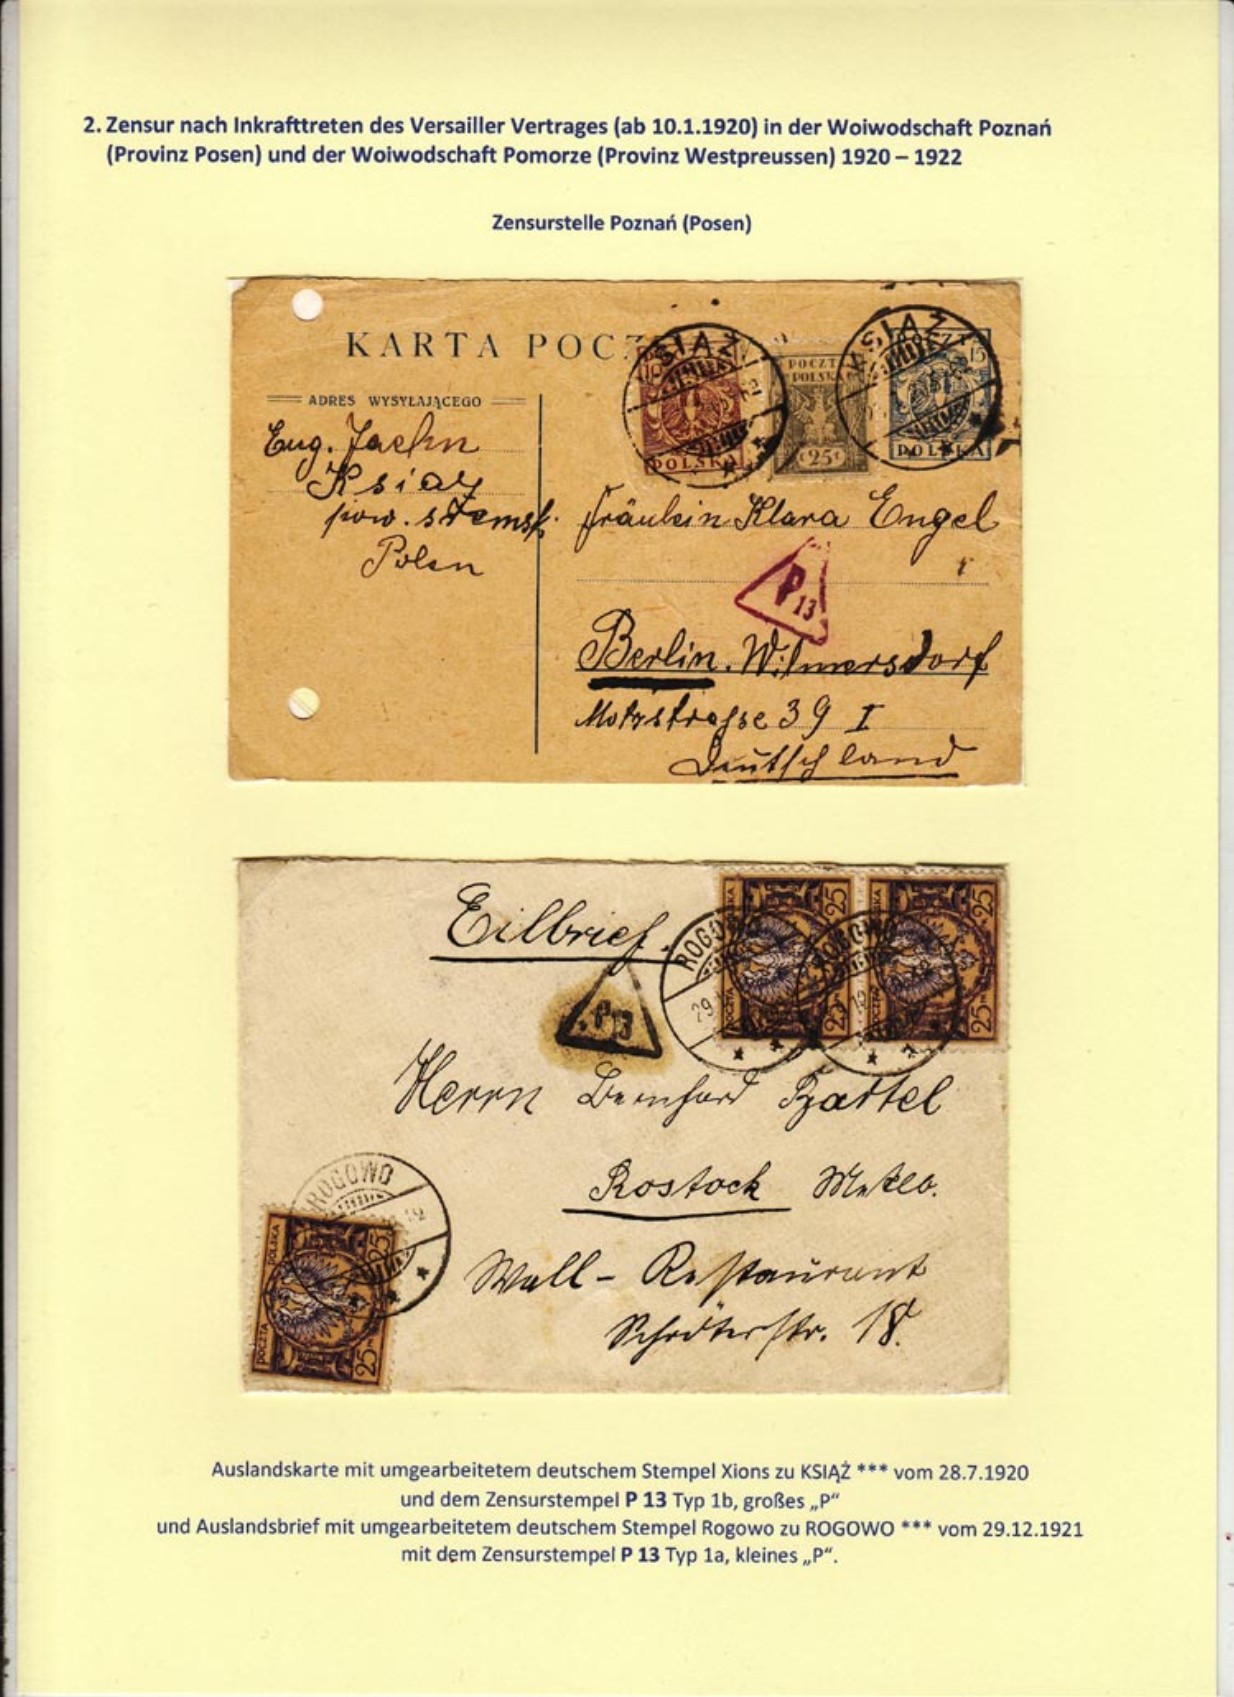 2. Zensur nach Inkrafttreten des Versailler Vertrages (ab 10.1.1920) in der Woiwodschaft Poznań
(Provinz Posen) und der Woiwodschaft Pomorze (Provinz Westpreussen) 1920 – 1922
Zensurstelle Poznań (Posen)
KARTA POCZ
KSIĄŻ
KSIĄŻ
POCZTA
POLSKA
25
15
POLSKA
POLSKA
ADRES WYSYŁAJĄCEGO
Eug. Jaehn
Ksiaz
pow. sremsk.
Polen
Fräulein Klara Engel
P 13
Berlin. Wilmersdorf
Motzstrasse 39 I
Deutschland
Eilbrief.
ROGOWO
ROGOWO
25
25
25
25
P 13
Herrn Bernhard Bartel
Rostock Meklb.
Wall - Restaurant
Schröterstr. 18.
ROGOWO
POLSKA
25
POCZTA
25
Auslandskarte mit umgearbeitetem deutschem Stempel Xions zu KSIĄŻ *** vom 28.7.1920
und dem Zensurstempel P 13 Typ 1b, großes „P“
und Auslandsbrief mit umgearbeitetem deutschem Stempel Rogowo zu ROGOWO *** vom 29.12.1921
mit dem Zensurstempel P 13 Typ 1a, kleines „P“.